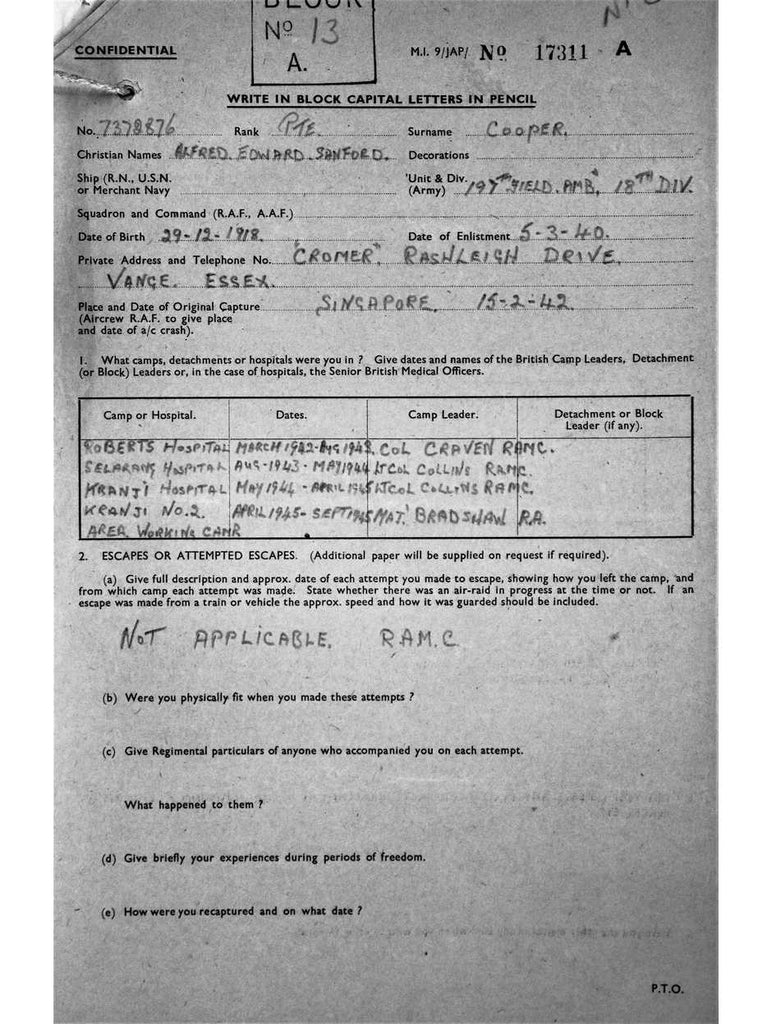 BLOCK
Nº 13
A.
CONFIDENTIAL
M.I. 9/JAP/ Nº 17311 A
WRITE IN BLOCK CAPITAL LETTERS IN PENCIL
No. 7378876 Rank PTE. Surname COOPER.
Christian Names ALFRED. EDWARD. SANFORD. Decorations
Ship (R.N., U.S.N. or Merchant Navy
Unit & Div. (Army) 197TH FIELD. AMB, 18TH DIV.
Squadron and Command (R.A.F., A.A.F.)
Date of Birth 29-12-1918. Date of Enlistment 5-3-40.
Private Address and Telephone No. "CROMER" RASHLEIGH DRIVE.
VANGE. ESSEX.
Place and Date of Original Capture SINGAPORE. 15-2-42.
(Aircrew R.A.F. to give place
and date of a/c crash).
1. What camps, detachments or hospitals were you in ? Give dates and names of the British Camp Leaders, Detachment
(or Block) Leaders or, in the case of hospitals, the Senior British Medical Officers.
Camp or Hospital. Dates. Camp Leader. Detachment or Block
Leader (if any).
ROBERTS HOSPITAL MARCH 1942-AUG 1943. COL CRAVEN RAMC.
SELARANG HOSPITAL AUG-1943-MAY 1944 LT COL COLLINS RAMC.
KRANJI HOSPITAL MAY 1944 - APRIL 1945 LT COL COLLINS RAMC.
KRANJI NO.2. APRIL 1945-SEPT 1945 MAJ. BRADSHAW R.A.
AREA WORKING CAMP
2. ESCAPES OR ATTEMPTED ESCAPES. (Additional paper will be supplied on request if required).
(a) Give full description and approx. date of each attempt you made to escape, showing how you left the camp, and
from which camp each attempt was made. State whether there was an air-raid in progress at the time or not. If an
escape was made from a train or vehicle the approx. speed and how it was guarded should be included.
NOT APPLICABLE. R.A.M.C.
(b) Were you physically fit when you made these attempts ?
(c) Give Regimental particulars of anyone who accompanied you on each attempt.
What happened to them ?
(d) Give briefly your experiences during periods of freedom.
(e) How were you recaptured and on what date ?
P.T.O.